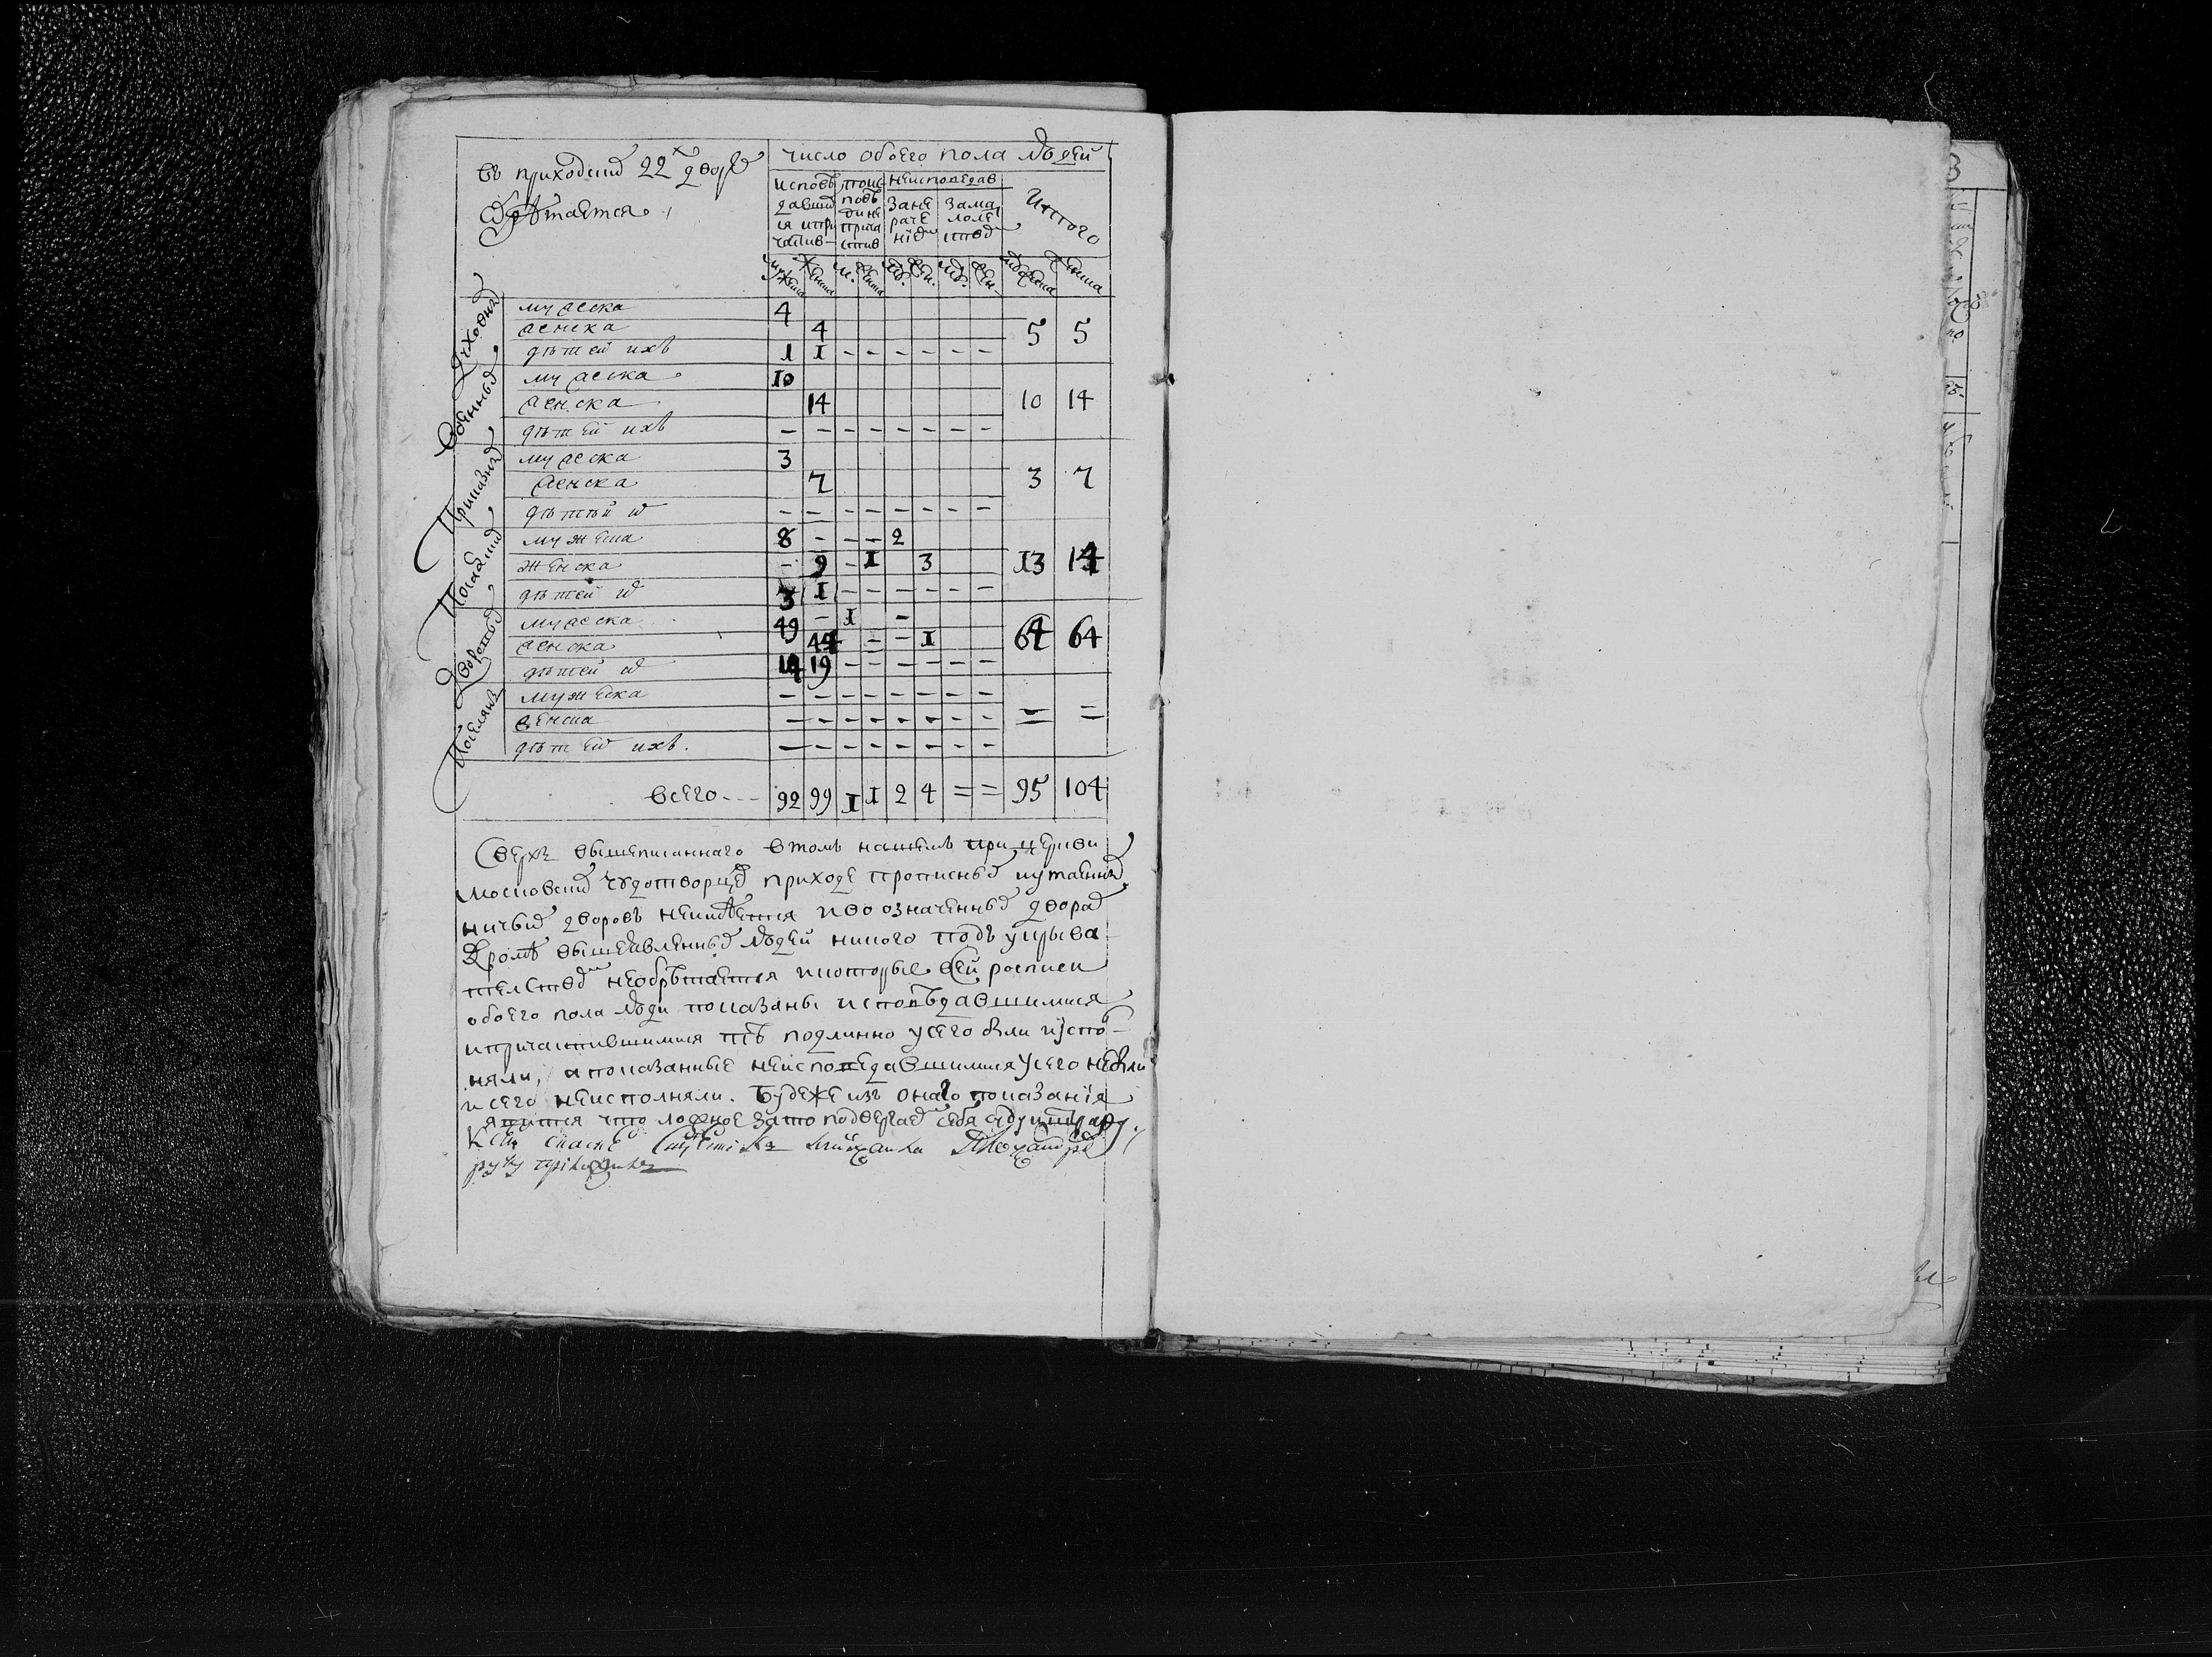 въ приходскихъ 22х дворѣхъ
обрѣтается
число обоего пола людей
исповѣдавшихся и причастив
по исповѣди не причастив
неисповедав
за нерачениемъ
за малолетствомъ
Итого
мужеска женска м. женска муж. жен. муж. жен. мужеска женска
Духовныхъ
мужеска 4
женска 4 5 5
дѣтей ихъ 1 1 - - - - - -
Военныхъ
мужеска 10
женска 14 10 14
дѣтей ихъ - - - - - - - -
Приказныхъ
мужеска 3
женска 7 3 7
дѣтей их - - - - - - - -
Посацкихъ
мужеска 8 - - - 2
женска - 9 - 1 3 13 14
дѣтей их 3 1 - - - - - -
Дворовыхъ
мужеска 49 - 1 -
женска 44 - - 1 64 64
дѣтей их 14 19 - - - - - -
Поселянъ
мужеска - - - - - - - -
женска - - - - - - - - = =
дѣтей ихъ. - - - - - - - -
всего --- 92 99 1 1 2 4 = = 95 104
Сверхъ вышеписаннаго в томъ нашемъ при церкви
московскихъ чудотворцевъ приходе прописныхъ и утаенныхъ
ничьихъ дворовъ неимѣется и во означенныхъ дворахъ
Кромѣ вышеявленныхъ людей никого подъ укрыва
телствомъ необрѣтается и которые в сей росписи
обоего пола люди показаны исповѣдавшимися
и причастившимися тѣ подлинно у сего были и испо-
няли, а показанные неисповедавшимися у сего небыли
и сего неисполняли. Будеже изъ онаго показанія
явится что ложное за то подвергаемъ себя суду и штрафу.
К сей
руку приложилъ